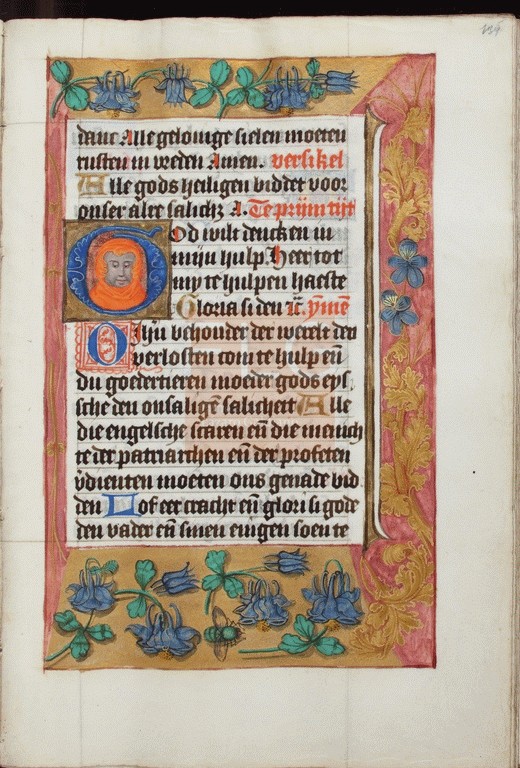 danc Alle gelouige sielen moeten
rusten in vreden Amen. versikel
Alle gods heiligen biddet voor
onser alre salichz A. Te prijm tijt
God wilt dencken in
mijn hulp. Heer tot
mij te hulpen haeste
Gloria si den
O Ihũ behouder der werelt den
verlosten com te hulp eñ
du goedertieren moeder gods eys
sche den onsaligẽ salicheit Alle
die engelsche scaren eñ die menich
te der patriarchen eñ der profeten
v̈dienten moeten ons genade vid
den Lof eer cracht eñ glori si gode
den vader eñ sinen enigen soen te